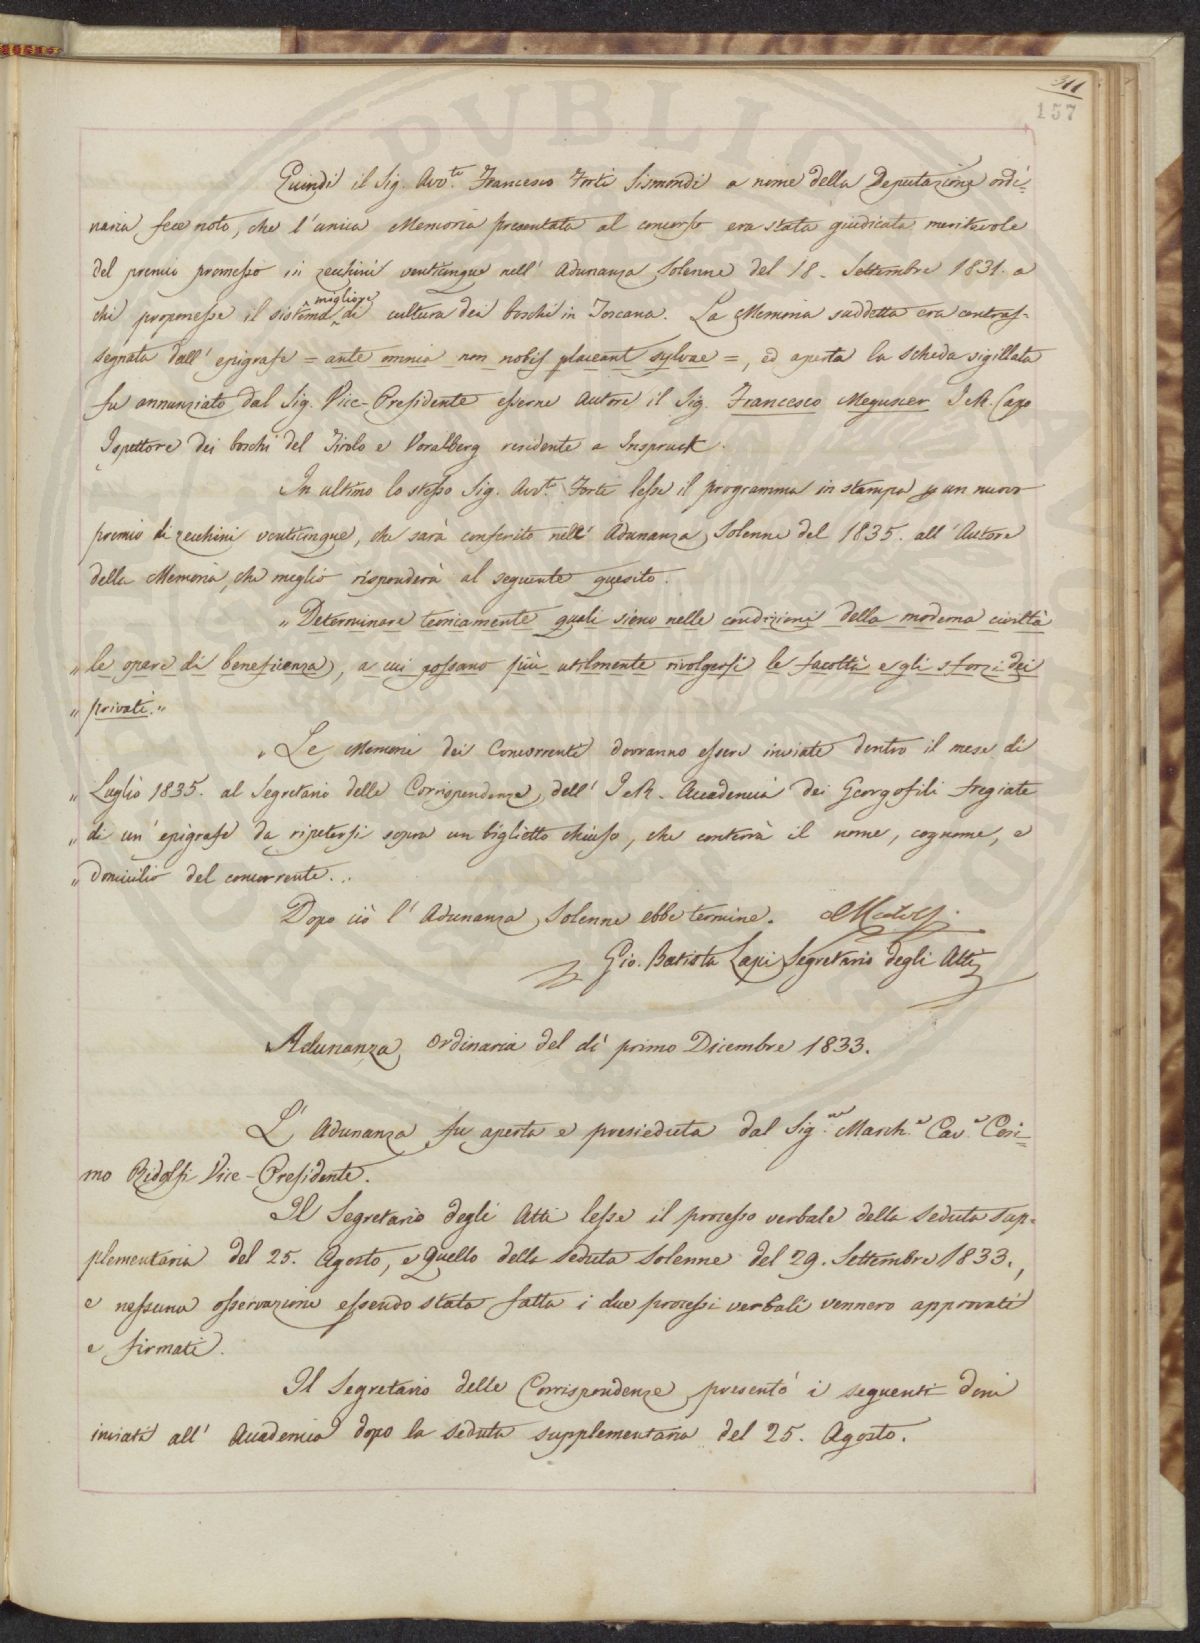 311
157
Quindi il Sig. Avv.to Francesco Forti Sismondi a nome della Deputazione ordi=
naria fece noto, che l'unica Memoria presentata al concorso era stata giudicata meritevole
del premio promesso in zecchini venticinque nell' Adunanza Solenne del 18. Settembre 1831. a
chi proponesse il migliore sistema di cultura dei boschi in Toscana. La Memoria suddetta era contras=
segnata dall' epigrafe = ante omnia non nobis placeant sylvae =, ed aperta la scheda sigillata
fu annunziato dal Sig. Vice-Presidente esserne Autore il Sig. Francesco Meguscer I. e R. Capo
Ispettore dei boschi del Tirolo e Voralberg residente a Inspruck.
In ultimo lo stesso Sig. Avv.to Forti lesse il programma in stampa p un nuovo
premio di zecchini venticinque, che sarà conferito nell' Adunanza Solenne del 1835. all' Autore
della Memoria, che meglio risponderà al seguente quesito.
„ Determinare teoricamente quali sieno nelle condizioni della moderna civiltà
„ le opere di beneficenza, a cui possano più utilmente rivolgersi le facoltà e gli sforzi dei
„ privati. „
„ Le Memorie dei Concorrenti dovranno essere inviate dentro il mese di
„ Luglio 1835. al Segretario delle Corrispondenze dell' I. e R. Accademia dei Georgofili fregiate
„ di un' epigrafe da ripetersi sopra un biglietto chiuso, che conterrà il nome, cognome, e
„ domicilio del concorrente. „
Dopo ciò l' Adunanza Solenne ebbe termine. C Ridolfi.
Gio. Batista Lapi Segretario degli Atti
Adunanza Ordinaria del dì primo Dicembre 1833.
L' Adunanza fu aperta e presieduta dal Sig.re March.e Cav.e Cosi=
mo Ridolfi Vice-Presidente.
Il Segretario degli Atti lesse il processo verbale della seduta sup=
plementaria del 25. Agosto, e Quello della Seduta Solenne del 29. Settembre 1833.,
e nessuna osservazione essendo stata fatta i due processi verbali vennero approvati
e firmati.
Il Segretario delle Corrispondenze presentò i seguenti doni
inviati all' Accademia dopo la seduta supplementaria del 25. Agosto.